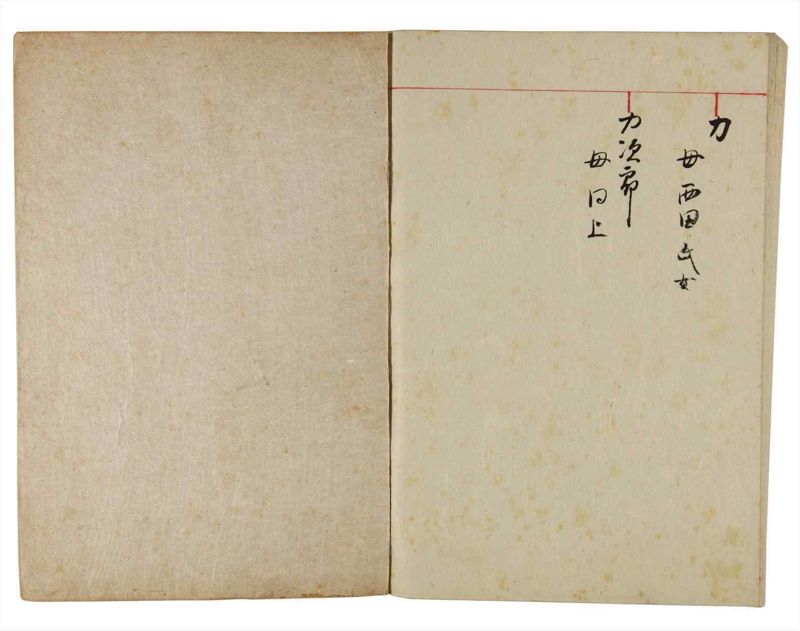 力
母西田氏女
力次郎
母同上